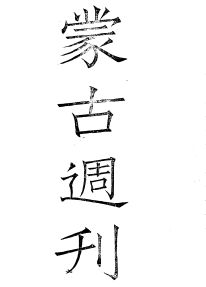 蒙古週刊